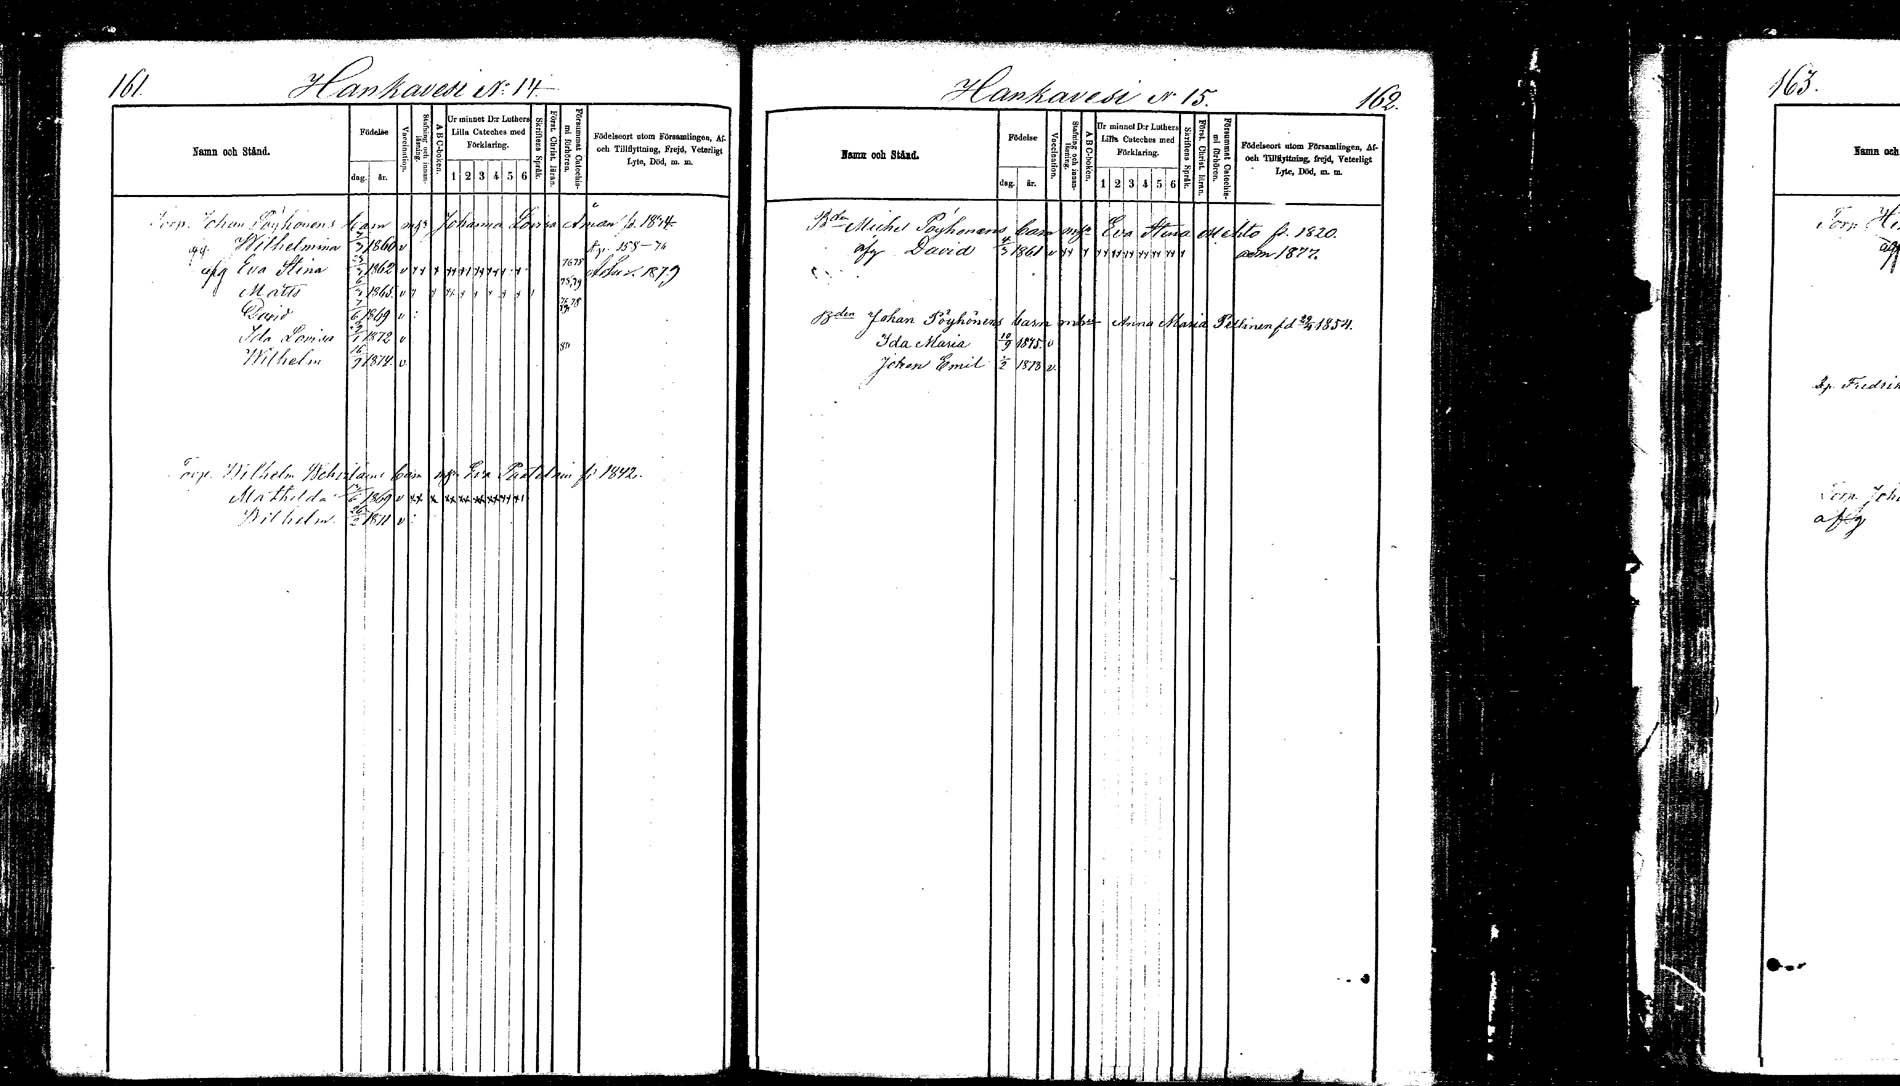 161.
Hankavesi N:o 14
Namn och Stånd.
Födelse
dag. år.
Vaccination.
Stafning och innanläsning.
A B C-boken.
Ur minnet D:r Luthers Lilla Cateches med Förklaring.
1 2 3 4 5 6
Skriftens Språk.
Först. Christ. läran.
Försummat Catechismi förhören.
Födelseort utom Församlingen, Af- och Tillflyttning, Frejd, Veterligt Lyte, Död, m. m.
Torp. Johan Pöyhönens barn Johanna Lovisa Åman fd. 1844
Wilhelmina 1860 v 158-76
afg Eva Stina 1862 v 76 78 1879
Matts 1865. v 78,79
David 1869 v 78
Ida Lovisa 1872 v
Wilhelm 16/9 1874. v 80
Torp. Wilhelm barn Eva fd 1842.
Mathilda 1869 v
Wilhelm. 26/2 1871 v
Hankavesi N 15.
162.
Namn och Stånd.
Födelse
dag. år.
Vaccination.
Stafning och innanläsning.
A B C-boken.
Ur minnet D:r Luthers Lilla Cateches med Förklaring.
1 2 3 4 5 6
Skriftens Språk.
Först. Christ. läran.
Försummat Catechismi förhören.
Födelseort utom Församlingen, Af- och Tillflyttning, frejd, Veterligt Lyte, Död, m. m.
Bden Michel Pöyhönens barn Eva Stina fd. 1820.
afg David 1861 v adm 1877.
Bden Johan Pöyhönens barn Anna Maria Pellinen fd 1854.
Ida Maria 10/9 1875. v
Johan Emil 1/2 1878 v.
163.
Namn och
Torp.
Fredrik
Torp. Joh
afg